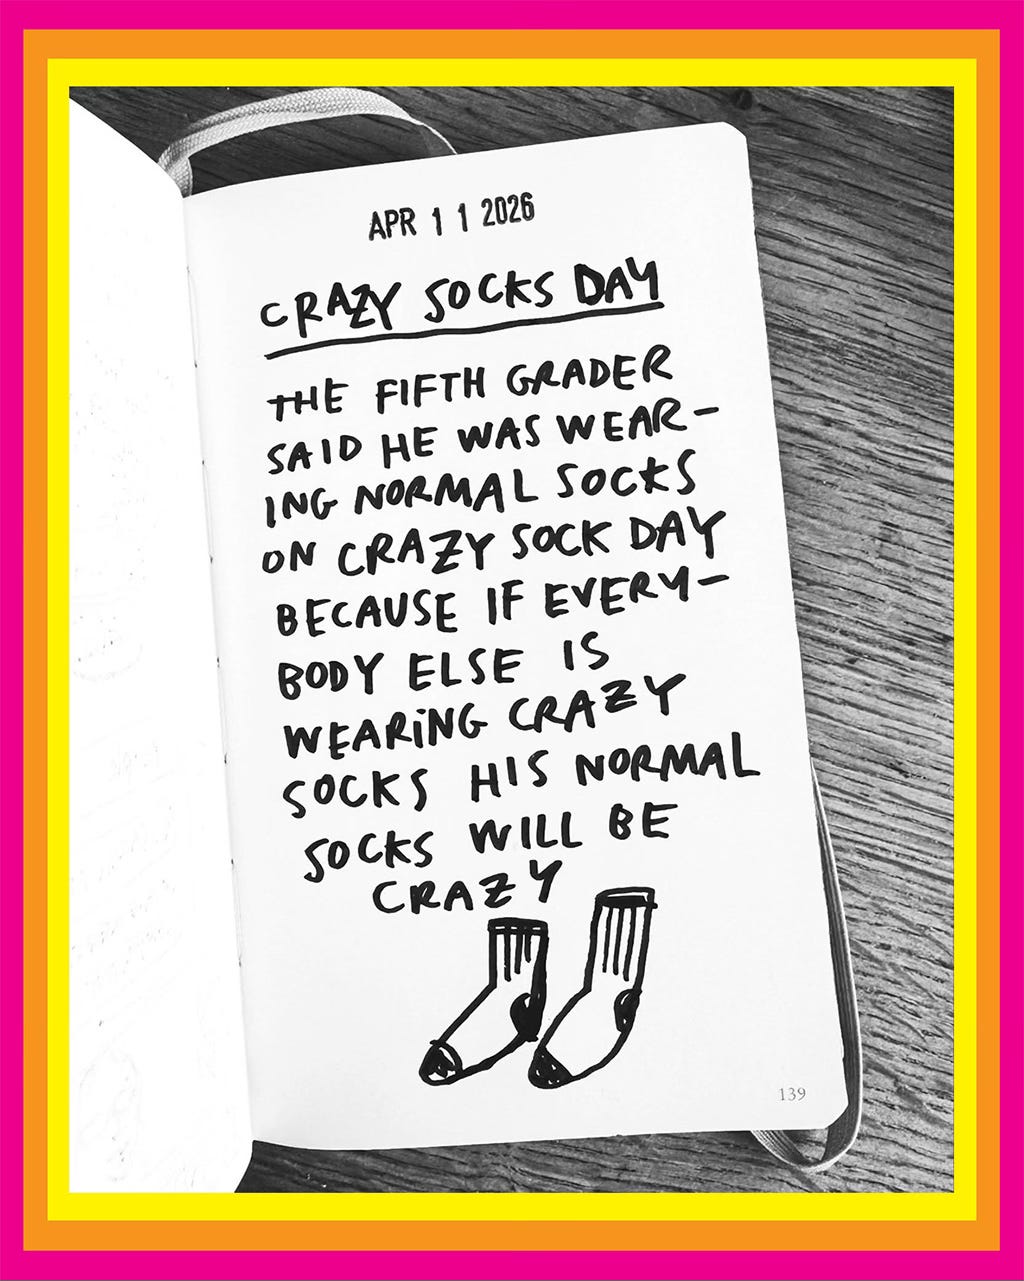 APR 11 2026
CRAZY SOCKS DAY
THE FIFTH GRADER
SAID HE WAS WEAR-
ING NORMAL SOCKS
ON CRAZY SOCK DAY
BECAUSE IF EVERY-
BODY ELSE IS
WEARING CRAZY
SOCKS HIS NORMAL
SOCKS WILL BE
CRAZY
139